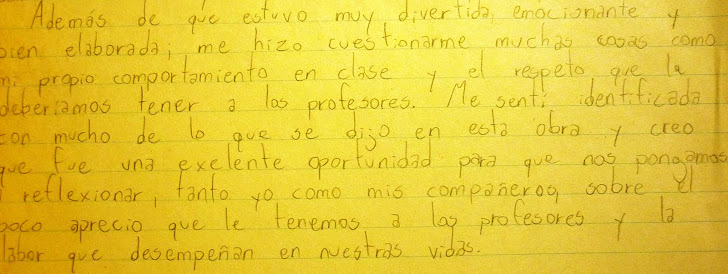 Además de que estuvo muy divertida, emocionante y
bien elaborada; me hizo cuestionarme muchas cosas como
mi propio comportamiento en clase y el respeto que la
deberiamos tener a los profesores. Me sentí identificada
con mucho de lo que se dijo en esta obra y creo
que fue una exelente oportunidad para que nos pongamos
a reflexionar, tanto yo como mis compañeros, sobre el
poco aprecio que le tenemos a los profesores y la
labor que desempeñan en nuestras vidas.